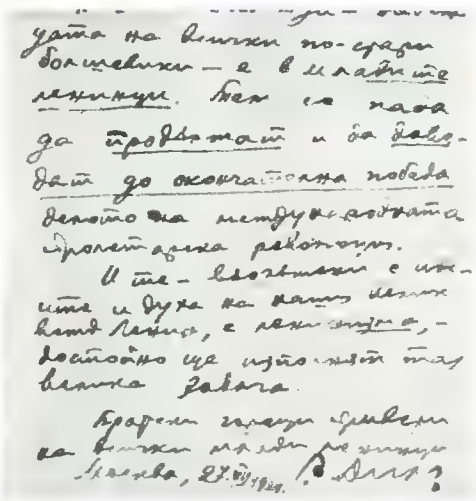 уята на всички по-стари
болшевики — е в младите
ленинци. Тям се пада
да продължат и да дове-
дат до окончателна победа
делото на международната
пролетарска революция.
И те — въоръжени с
и духа на нашия велик
вожд Ленин, с ленинизма, —
достойно ще изпълнят тая
велика задача.
Братски горещи привети
на всички млади ленинци
Москва, 27.